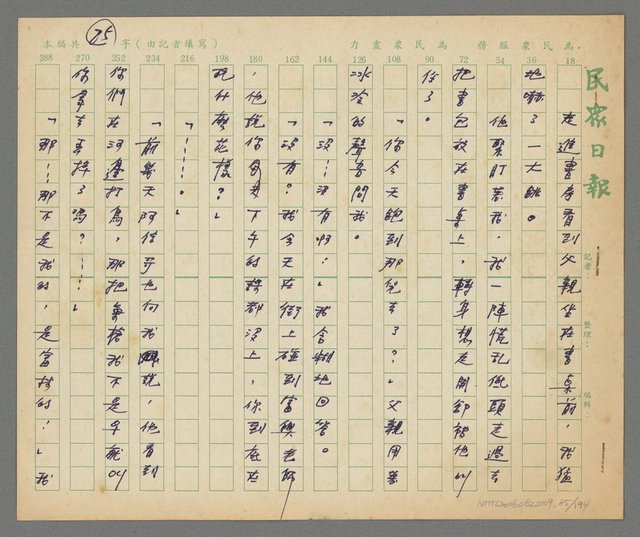 民眾日報
為民眾服務 為民眾盡力
字(由記者填寫) 本稿共
75
記者: 整理: 編輯
18 36 54 72 90 108 126 144 162 180 198 216 234 252 270 288
走進書房看到父親坐在書桌前,我猛
地嚇了一大跳。
他緊盯著我,我一陣慌亂低頭走過去
把書包放在書桌上,轉身想走開卻被他叫
住了。
「你今天跑到那兒去了?」父親用著
冰冷的聲音問我。
「沒……沒有啊!」我含糊地回答。
「沒有?我今天在街上碰到富興老師
,他說你下午的課都沒上,你到底在
玩什麼花樣?」
「……。」
「前幾天阿信哥也向我說,他看到
你們在河邊打鳥,那把鳥槍我不是早就叫
你拿去丟掉了嗎?……」
「那……那不是我的,是富村的!」我
NMTL20060620009, 85/194